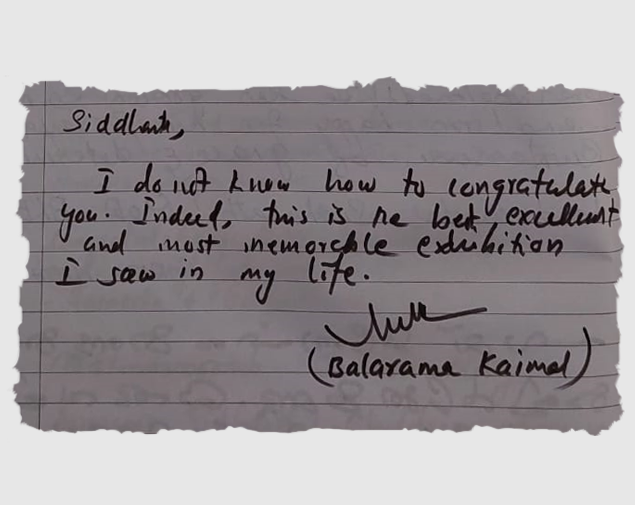 Siddharth,
I do not know how to congratulate
you. Indeed, this is he best excellent
and most memorable exhibition
I saw in my life.
(Balarama Kaimal)